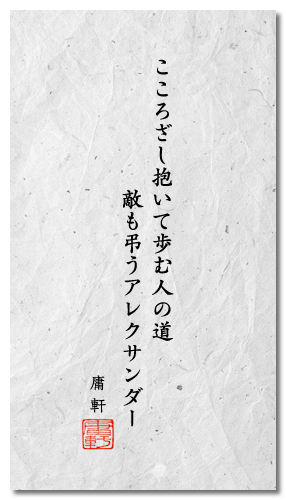 こころざし抱いて歩む人の道
敵も弔うアレクサンダー
庸軒